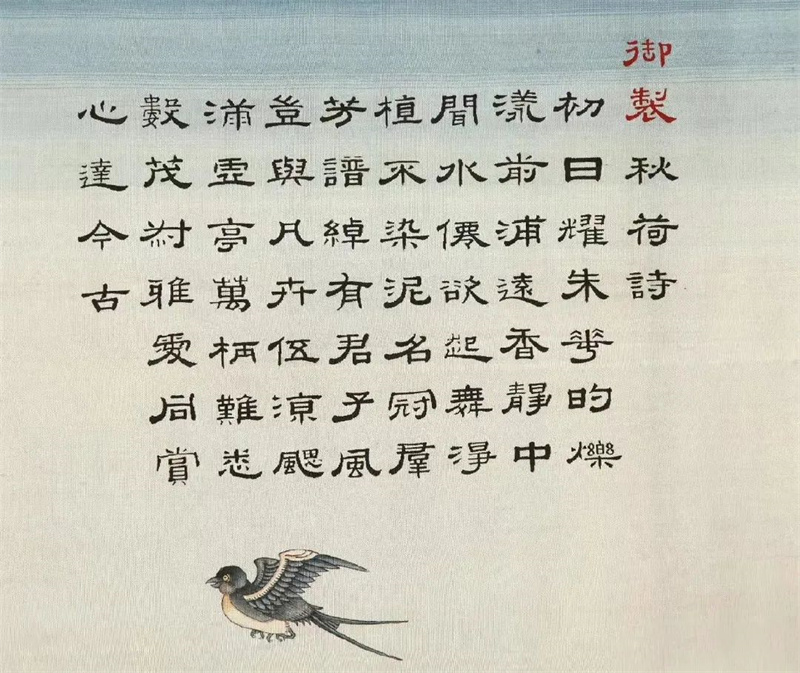 御製秋荷詩
初日耀朱華的爍
漾前浦遠香靜中
聞水僊欲起舞淨
植不染泥名冠羣
芳譜綽有君子風
豈與凡卉伍涼颸
滿虛亭萬柄難悉
數茂對雅愛同賞
心達今古